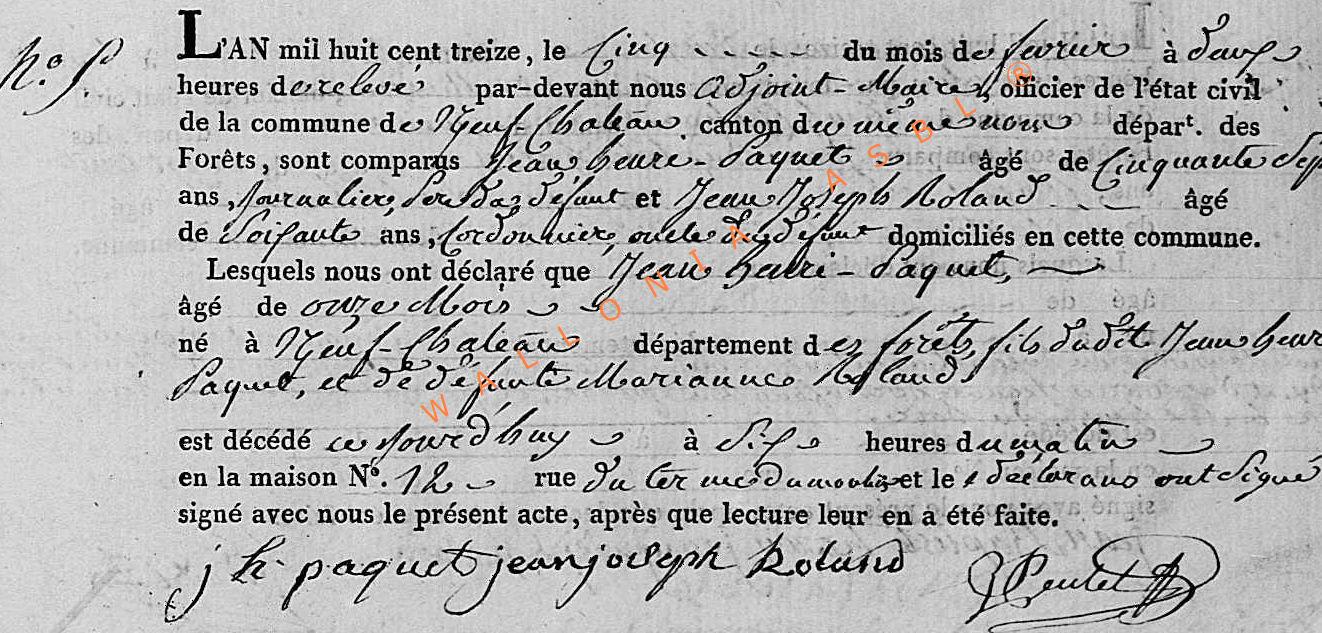 N.o 5
L'AN mil huit cent treize, le Cinq du mois de fevrier à deux
heures de relevé par-devant nous Adjoint-Maire, officier de l'état civil
de la commune de Neuf-Chateau canton du même nom départ. des
Forêts, sont comparus Jean henri-Paquet âgé de Cinquante Sep
ans, Journalier, Per du défunt et Jean Joseph Roland âgé
de Soisante ans, Cordonnier, oncle du défunt domiciliés en cette commune.
Lesquels nous ont déclaré que Jean henri-Paquet,
âgé de onze Mois
né à Neuf-Chateau département des forêts, fils dudit Jean henr
Paquet, et de défunte Marianne Roland
est décédé ce Jourd'huy à Six heures du matin
en la maison No. 12 rue du et les déclarans ont Signé
signé avec nous le présent acte, après que lecture leur en a été faite.
j h paquet jean joseph Roland
WALLONIA ASBL ®